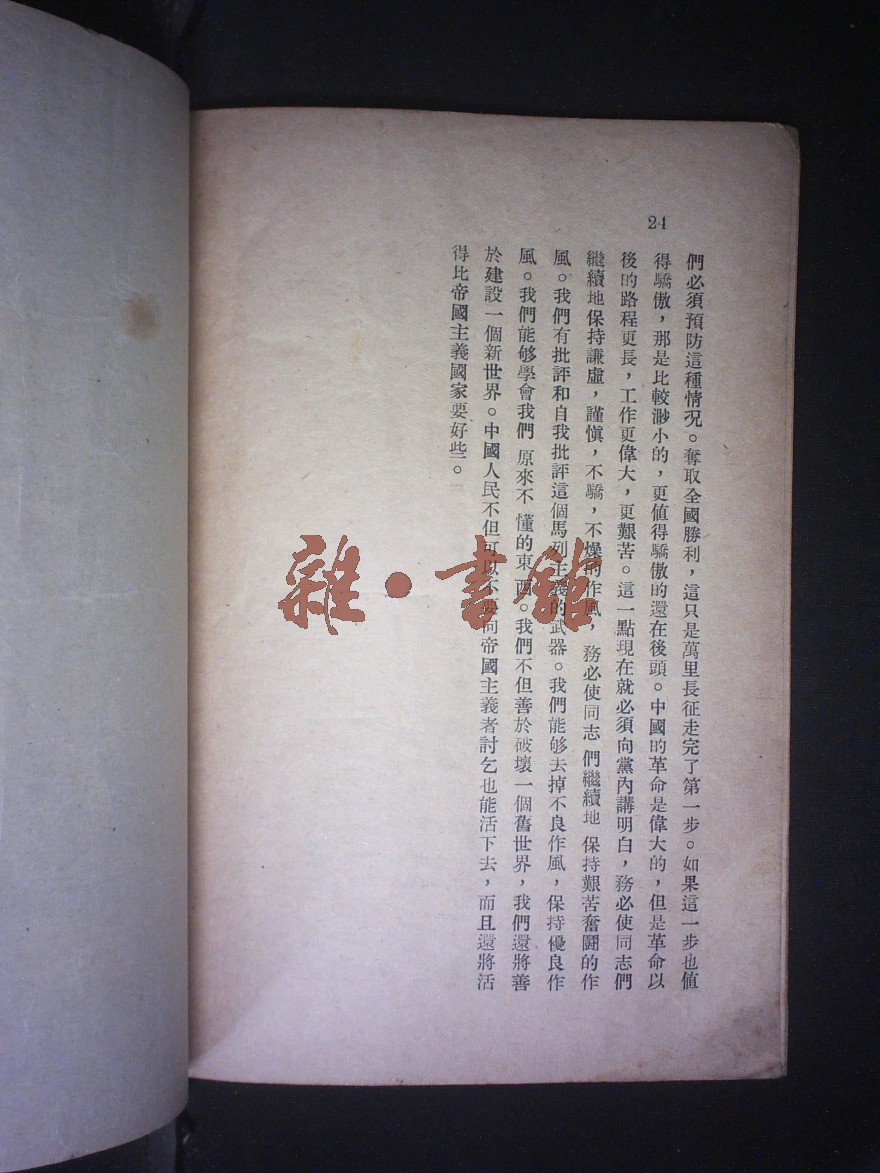 24
們必須預防這種情况。奪取全國勝利，這只是萬里長征走完了第一步。如果這一步也值
得驕傲，那是比較渺小的，更值得驕傲的還在後頭。中國的革命是偉大的，但是革命以
後的路程更長，工作更偉大，更艱苦。這一點現在就必須向黨內講明白，務必使同志們
繼續地保持謙虛，謹愼，不驕，不燥的作風，務必使同志們繼續地保持艱苦奮鬪的作
風。我們有批評和自我批評這個馬列主義的武器。我們能够去掉不良作風，保持優良作
風。我們能够學會我們原來不懂的東西。我們不但善於破壞一個舊世界，我們還將善
於建設一個新世界。中國人民不但可以不要向帝國主義者討乞也能活下去，而且還將活
得比帝國主義國家要好些。
雜·書館